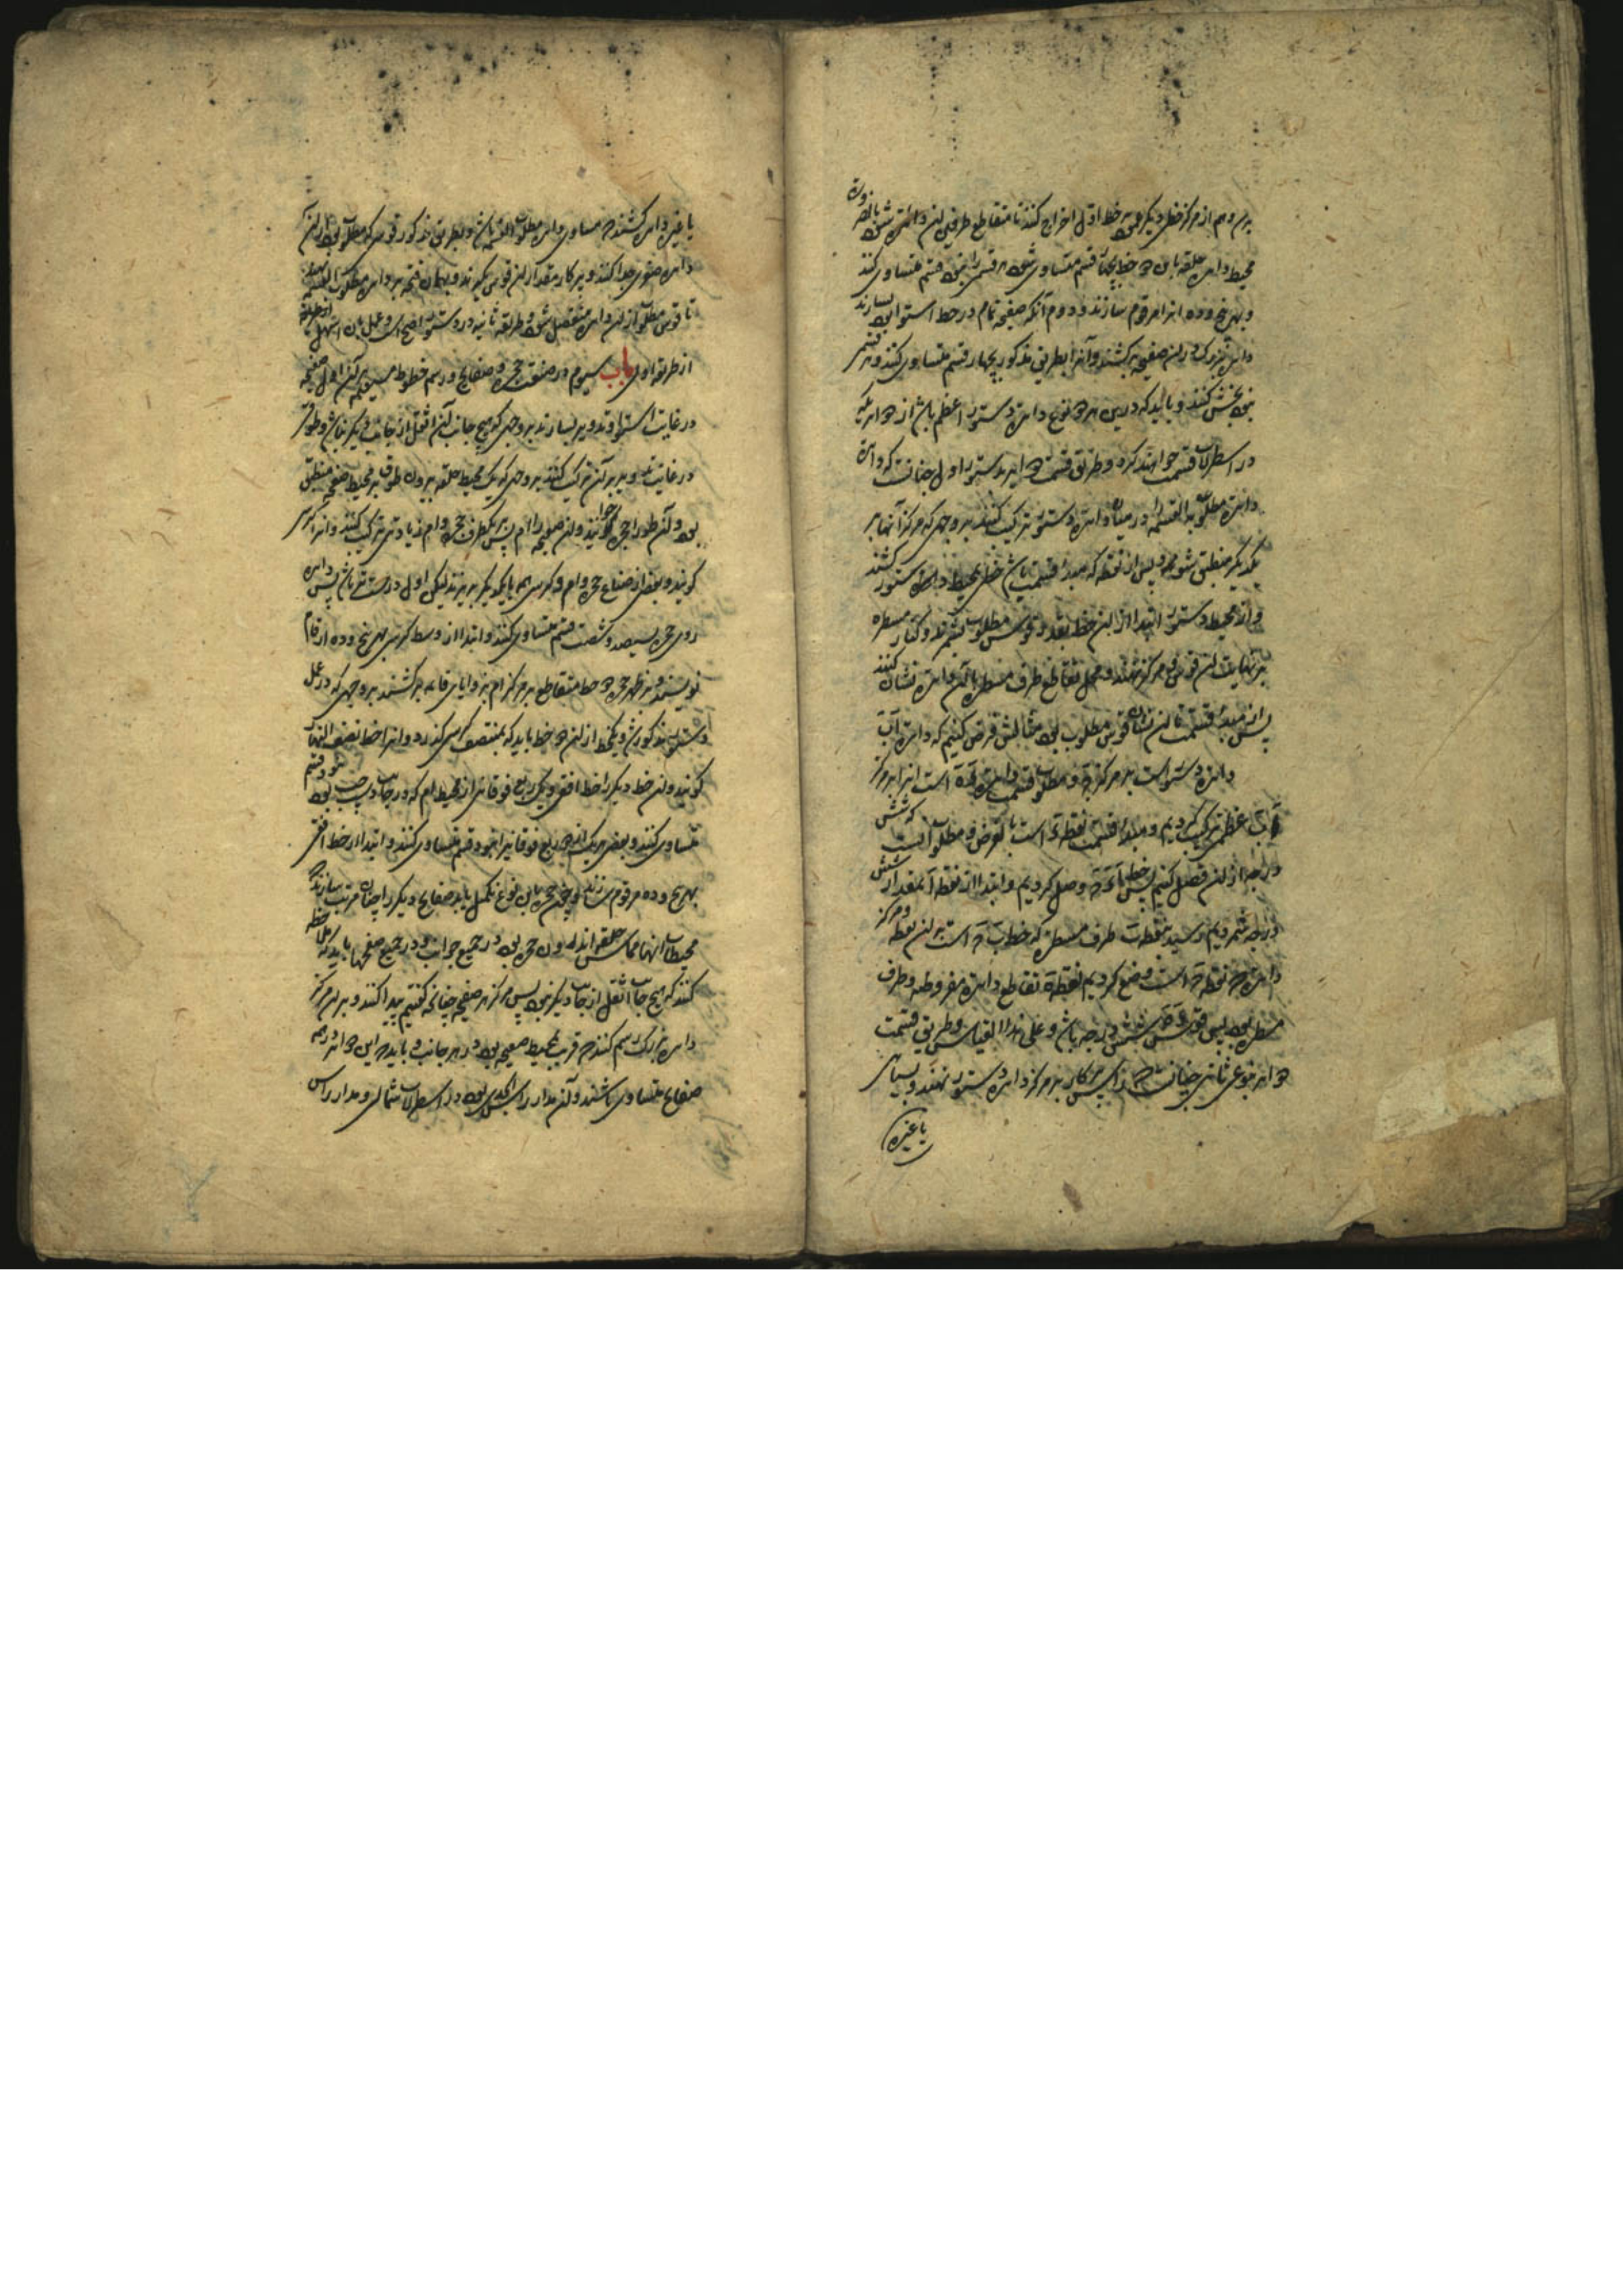 برو هم از مرکز خطی دیگر عمود بر خط اول اخراج کنند تا متقاطع طرفین آن دائره شود بالضروره
محیط دایره حلقه باین دو خط بچهار قسم متساوی شود هر قسمی را بنود قسم متساوی کنند
و بهر پنج و ده آنرا مرقوم سازند و دوم آنکه صفیحه تمام در حد استوا بسازند
دائره بزرگ در آن صفیحه بر کشند و آنرا بطریق مذکور بچهار قسم متساوی کنند و هر قسمی
نود بخش کنند و باید که درین هر دو نوع دایره دستور اعظم باشد از دوایر که
در اسطرلاب قسمت خواهند کرد و طریق قسمت دوایر بدستور اول چنانست که دایره
دایره مطلوب القسمه را در میان دایره دستور ترکیب کنند بر وجهی که مرکز آنها بر
یکدیگر منطبق شود پس از نقطه که مبدأ قسمت باشد خطی بمحیط دایره دستور کشند
و از محیط دستور ابتدا از آن خط بقدر قوس مطلوب بشمرند و کنار مسطره
بر نهایت آن قوس و مرکز نهند و محل تقاطع طرف مسطره با آن دایره نشان کنند
پس از مبدأ قسمت تا آن نشان قوس مطلوب بود مثالش فرض کنیم که دایره آب
دایره دستور است بر مرکز و مطلوب قسمت دایره است آنرا بر مرکز
آب عظمی ترکیب کردیم و مبدأ قسمت نقطه است بالفرض و مطلوب آنست که شش
درجه از آن فصل کنیم پس خط وصل کردیم و ابتدا از نقطه آ بمقدار شش
درجه شمردیم رسید بنقطه ب طرف مسطره که خط ب است بر آن نقطه و مرکز
دایره که نقطه است وضع کردیم نقطه تقاطع دایره مفروضه و طرف
مسطره بود پس قوس شش درجه باشد و علی هذا القیاس و طریق قسمت
دوایر بنوع ثانی چنانست که رأس پرکار بر مرکز دایره دستور نهند و بسیاری
یا غیره
یا غیره دایره کشند که مساوی دایره مطلوب القسمه باشد و بطریق مذکور قوسی که مطلوب بود از آن
دایره مثنوی جدا کنند و پرکار مقدار آن قوس گیرند و بهمان فتحه بر دایره مطلوب القسمه نهند
تا قوس مطلوب از آن دایره منفصل شود و طریقه ثانیه در دستور اصح است و عمل بان اسهل از طریقه
از طریقه اولی باب سیوم در صنعت حجره و صفایح و رسم خطوط مستقیمه بر آن اول صفیحه
در غایت استوا و تدویر بسازند بر وجهی که هیچ جانب آن اثقل از جانب دیگر نباشد و طوقی
در غایت تدویر بر آن ترکیب کنند بر وجهی که یک محیط حلقه بیرون طوق بر محیط صفیحه منطبق
بود و آن طوق را حجره خوانند و آن صفیحه را ام پس بر یکطرف حجره و ام زیادتی ترکیب کنند و آنرا کرسی
گویند و بعضی از صناع حجره و ام و کرسی هم با یکدیگر بریزند لیکن اول درست تر باشد پس دایره
روی حجره بسیصد و شصت قسم متساوی کنند و ابتدا از وسط کرسی بهر پنج و ده ارقام
نویسند و بر ظهر حجره دو خط متقاطع بر مرکز ام بزوایای قائمه بر کشند بر وجهی که در عمل
دستور مذکور شد و یکخط از آن دو خط باید که بمنتصف کرسی گذرد و آنرا خط نصف النهار
گویند و آن خط دیگر را خط افق و یک ربع فوقانی از محیط ام که در جانب چپ بود بنود قسم
متساوی کنند و بعضی هر یک از دو ربع فوقانی را بنود قسم متساوی کنند و ابتدا از خط افق
بهر پنج و ده مرقوم سازند و چون حجره باین نوع تکمیل یابد صفایح دیگر را چنان مرتب سازند که
محیطات آنها مماس حلقه اندرون حجره بود در جمیع جوانب و در جمیع صفحها باید که ملاحظه
کنند که هیچ جانب اثقل از جانب دیگر نبود پس مرکز هر صفیحه چنانکه گفتیم پیدا کنند و بر آن مرکز
دایره بزرگ رسم کنند که قریب بمحیط صفیحه بود در هر جانب و باید که این دوایر در همه
صفایح متساوی باشند و آن مدار رأس الجدی بود در اسطرلاب شمالی و مدار رأس